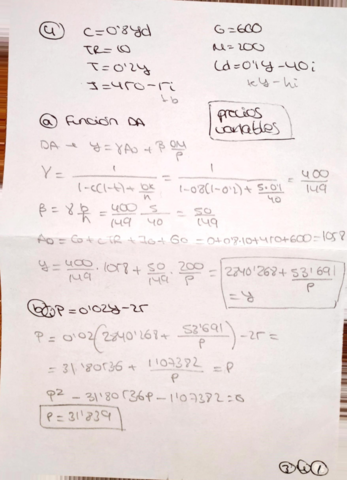 ④ C = 0'8yd G = 600
TR = 10 M = 200
T = 0'2y Ld = 0'1y - 40i
I = 450 - 5i ky - hi
↳b
ⓐ Función DA
precios variables
DA → y = γA0 + β M/P
γ = 1 / (1-c(1-t) + bk/h) = 1 / (1-0'8(1-0'2) + 5·0'1/40) = 400/149
β = γ b/h = 400/149 · 5/40 = 50/149
A0 = C0 + cTR + I0 + G0 = 0 + 0'8·10 + 450 + 600 = 1058
y = 400/149 · 1058 + 50/149 · 200/P = 2840'268 + 53'691/P = y
ⓑ P = 0'02y - 25
P = 0'02 (2840'268 + 53'691/P) - 25 =
= 31'80536 + 1'07382/P = P
P² - 31'80536P - 1'07382 = 0
P = 31'839